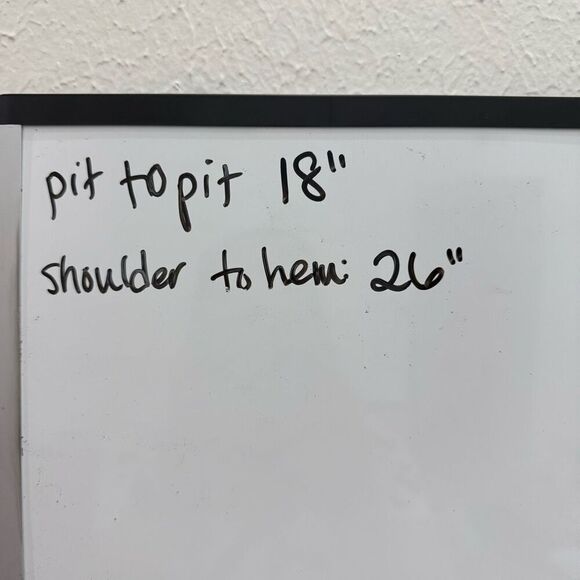 pit to pit 18"
shoulder to hem: 26"